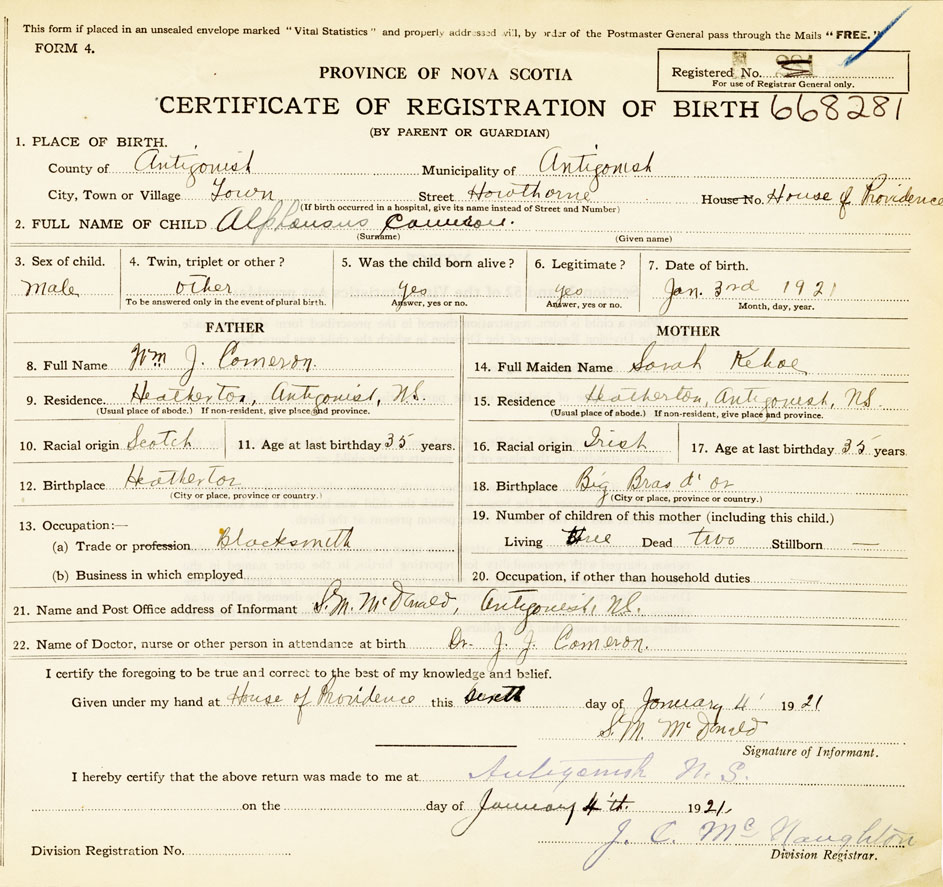 This form if placed in an unsealed envelope marked "Vital Statistics" and properly addressed will, by order of the Postmaster General pass through the Mails "FREE."
FORM 4.
PROVINCE OF NOVA SCOTIA
Registered No.
For use of Registrar General only.
CERTIFICATE OF REGISTRATION OF BIRTH 668281
(BY PARENT OR GUARDIAN)
1. PLACE OF BIRTH.
County of Antigonish Municipality of Antigonish
City, Town or Village Town Street Hawthorne House No. House of Providence
(If birth occurred in a hospital, give its name instead of Street and Number)
2. FULL NAME OF CHILD Alphonsus Cameron.
(Surname) (Given name)
3. Sex of child. 4. Twin, triplet or other? 5. Was the child born alive? 6. Legitimate? 7. Date of birth.
Male other yes yes Jan. 3rd 1921
To be answered only in the event of plural birth. Answer, yes or no. Answer, yes or no. Month, day, year.
FATHER MOTHER
8. Full Name Wm J. Cameron. 14. Full Maiden Name Sarah Kehoe
9. Residence. Heatherton, Antigonist, N.S. 15. Residence Heatherton, Antigonish, NS.
(Usual place of abode.) If non-resident, give place and province. (Usual place of abode.) If non-resident, give place and province.
10. Racial origin Scotch 11. Age at last birthday 35 years. 16. Racial origin Irish 17. Age at last birthday 35 years.
12. Birthplace Heatherton 18. Birthplace Big Bras d'or
(City or place, province or country.) (City or place, province or country.)
19. Number of children of this mother (including this child.)
13. Occupation:—
(a) Trade or profession Blacksmith Living three Dead two Stillborn —
(b) Business in which employed 20. Occupation, if other than household duties
21. Name and Post Office address of Informant S.M. McDonald, Antigonish, N.S.
22. Name of Doctor, nurse or other person in attendance at birth Dr. J. J. Cameron.
I certify the foregoing to be true and correct to the best of my knowledge and belief.
Given under my hand at House of Providence this day of January 4 1921
S.M. McDonald
Signature of Informant.
I hereby certify that the above return was made to me at Antigonish N.S.
on the day of January 4th. 1921
J. C. McNaughton
Division Registration No. Division Registrar.